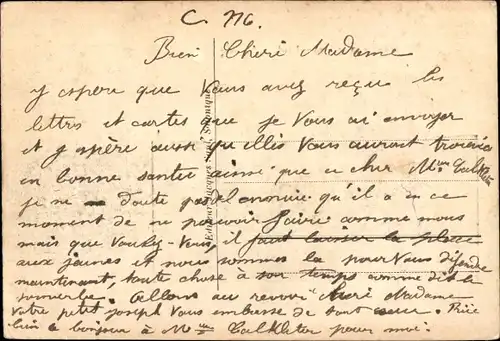 C 716.
Bien Cheri Madame
J espere que Vous avez reçu les
lettrs et cartes que je Vous ai envoyer
et j espère aussi qu'elles Vous auront trouvée
en bonne santée ainsi que ce cher Mr
je ne doute pas qu'il a en ce
moment de ne pouvoir faire comme nous
mais que Voulez-Vous, il faut laisser la place
aux jeunes et nous sommes la pour Vous défendre
maintenant, toute chose à son temps comme dit le
proverbe. Allons au revoir cheri Madame
Votre petit joseph Vous embrasse de tout cœur.
bien le bonjour à Mr pour moi.